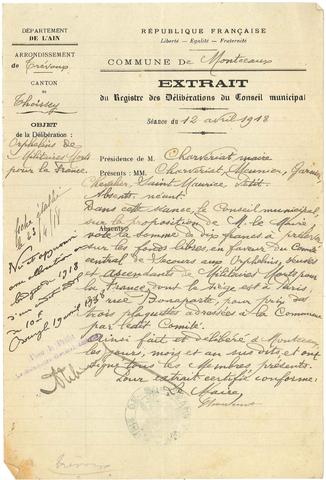 DÉPARTEMENT
DE L'AIN
ARRONDISSEMENT
de Trévoux
CANTON
de Thoissey
OBJET
de la Délibération :
Orphelins de
Militaires Morts
pour la France.
RÉPUBLIQUE FRANÇAISE
Liberté — Égalité — Fraternité
COMMUNE DE Montceaux
EXTRAIT
du Registre des Délibérations du Conseil municipal
Séance du 12 avril 1918
Présidence de M. Charveriat maire
Présents : MM. Charveriat, Meunier,
Chevalier, Saint Maurice,
Absents néant.
Absents
Dans cette séance, le Conseil municipal,
sur la proposition de M. le Maire
vote la somme de dix francs à prélever
sur les fonds libres, en faveur du Comité
central de Secours aux Orphelins, veuves
et ascendants de Militaires Morts pour
la France dont le siège est à Paris,
rue Bonaparte, pour prix de
trois plaquettes adressées à la Commune
par ledit Comité.
Ainsi fait et délibéré à Montceaux
les jours, mois et an sus dits et ont
signé tous les Membres présents.
Pour extrait certifié conforme :
Le Maire,
Vu et approuvé
1918
10 f
Bourg 19 avril 1918
Trévoux